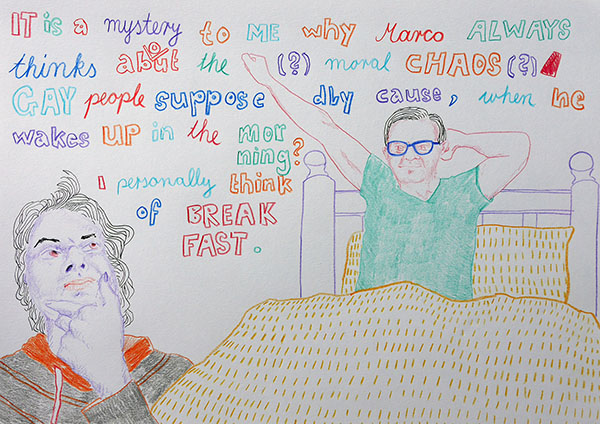 IT is a mystery to ME why Marco ALWAYS
thinks about the (?) moral CHAOS (?)
GAY people suppose dly cause, when he
wakes UP in the mor
ning?
I personally think
of BREAK
FAST.